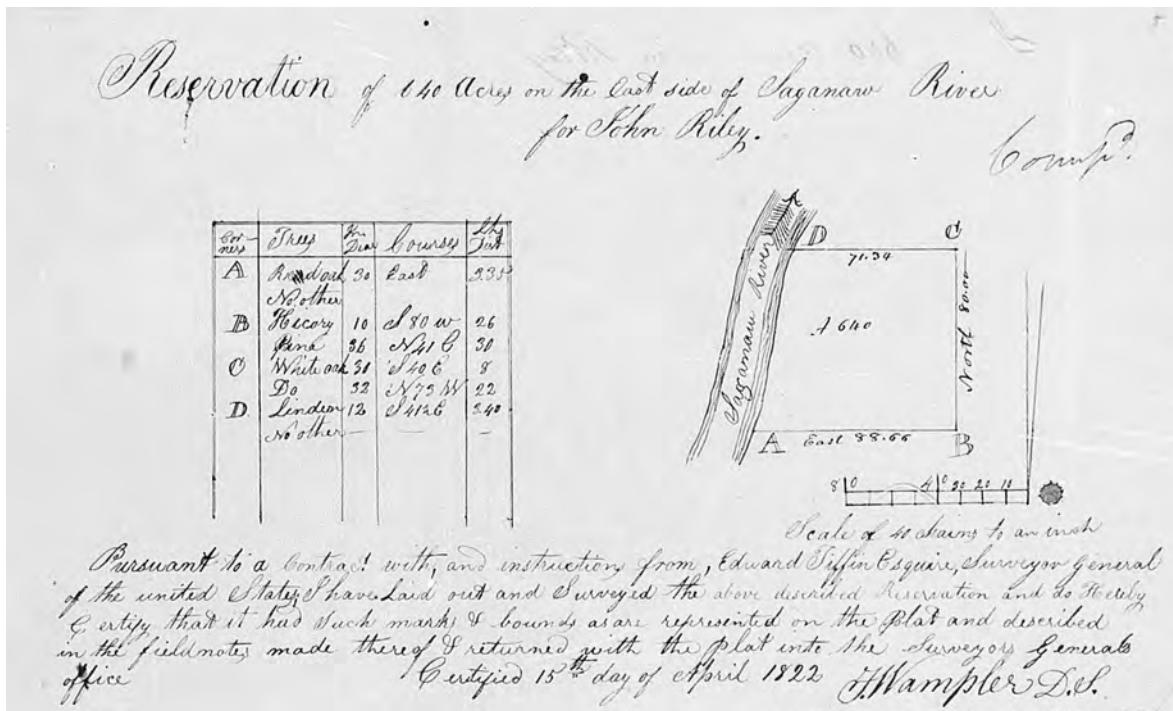 Reservation of 640 Acres on the East side of Saganaw River
for John Riley.
Comp.d
Cor-ners Trees In. Dia Courses Lks Dist
A Read oak 30 East 335
No other
B Hicory 10 S 80 W 26
Pine 36 N 41 E 30
C White oak 30 S 40 E 8
Do 32 N 73 W 22
D Linden 12 S 412 E 240
No other — — —
D C
71.34
Saganaw River
A 640
North 80.00
A East 88.66 B
80 40 30 20 10
Scale of 40 chains to an inch
Pursuant to a Contract with, and instructions from, Edward Tiffin Esquire, Surveyor General
of the united States, I have Laid out and Surveyed the above discribed Reservation and do Hereby
Certify that it had such marks & bounds as are represented on the Plat and described
in the fieldnotes made thereof & returned with the plat into the Surveyors Generals
office Certified 15th day of April 1822 J. Wampler D.S.